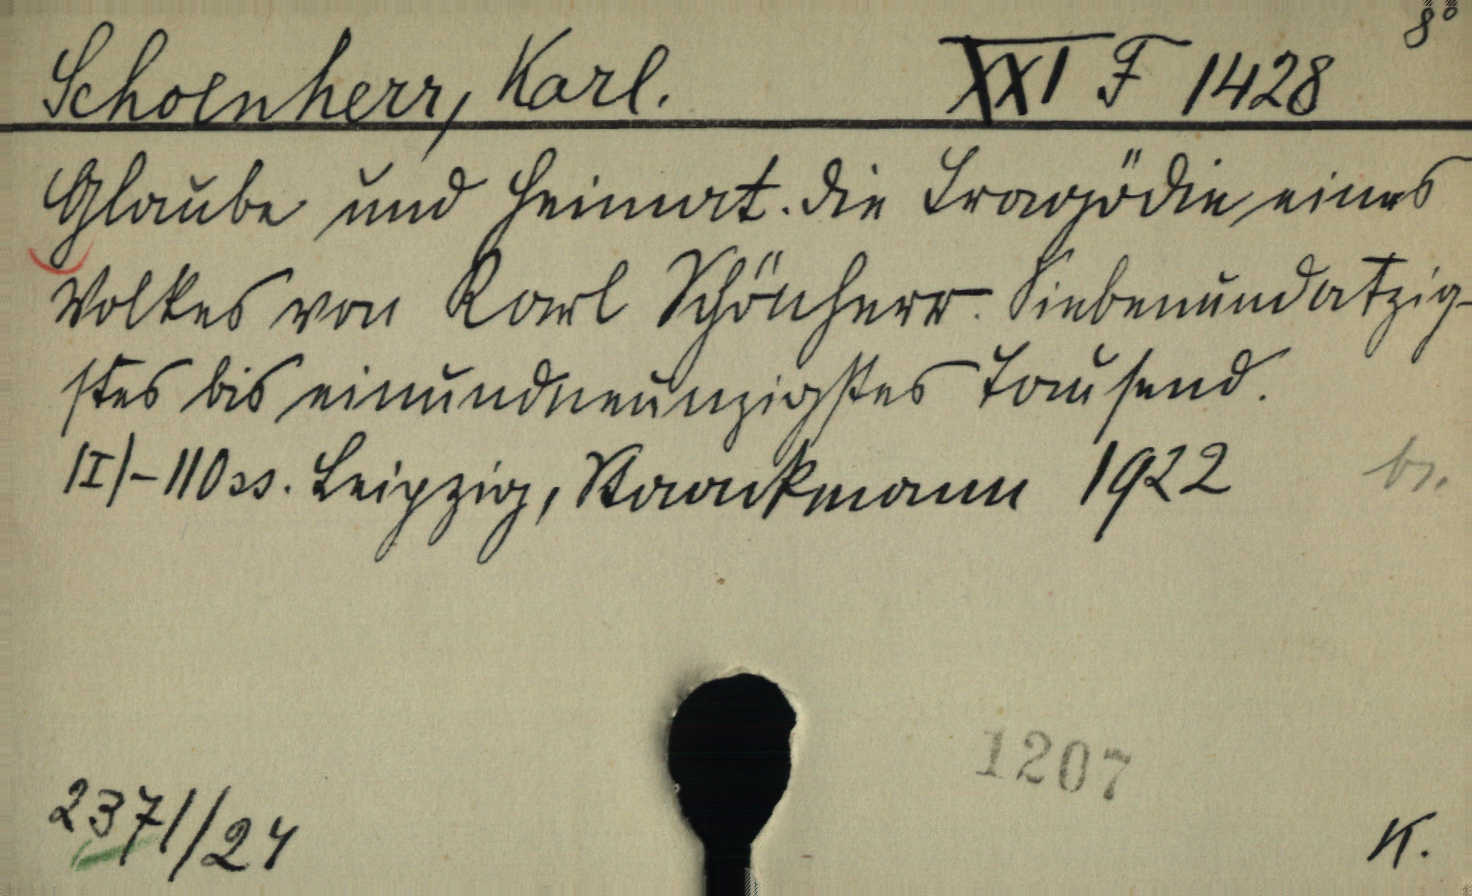 8°
Schoenherr, Karl. XXI F 1428
Glaube und Heimat. Die Tragödie eines
Volkes von Karl Schönherr. Siebenundachtzig-
stes bis einundneunzigstes Tausend.
(I)-110 ss. Leipzig, Staackmann 1922 br.
1207
2371/24
K.